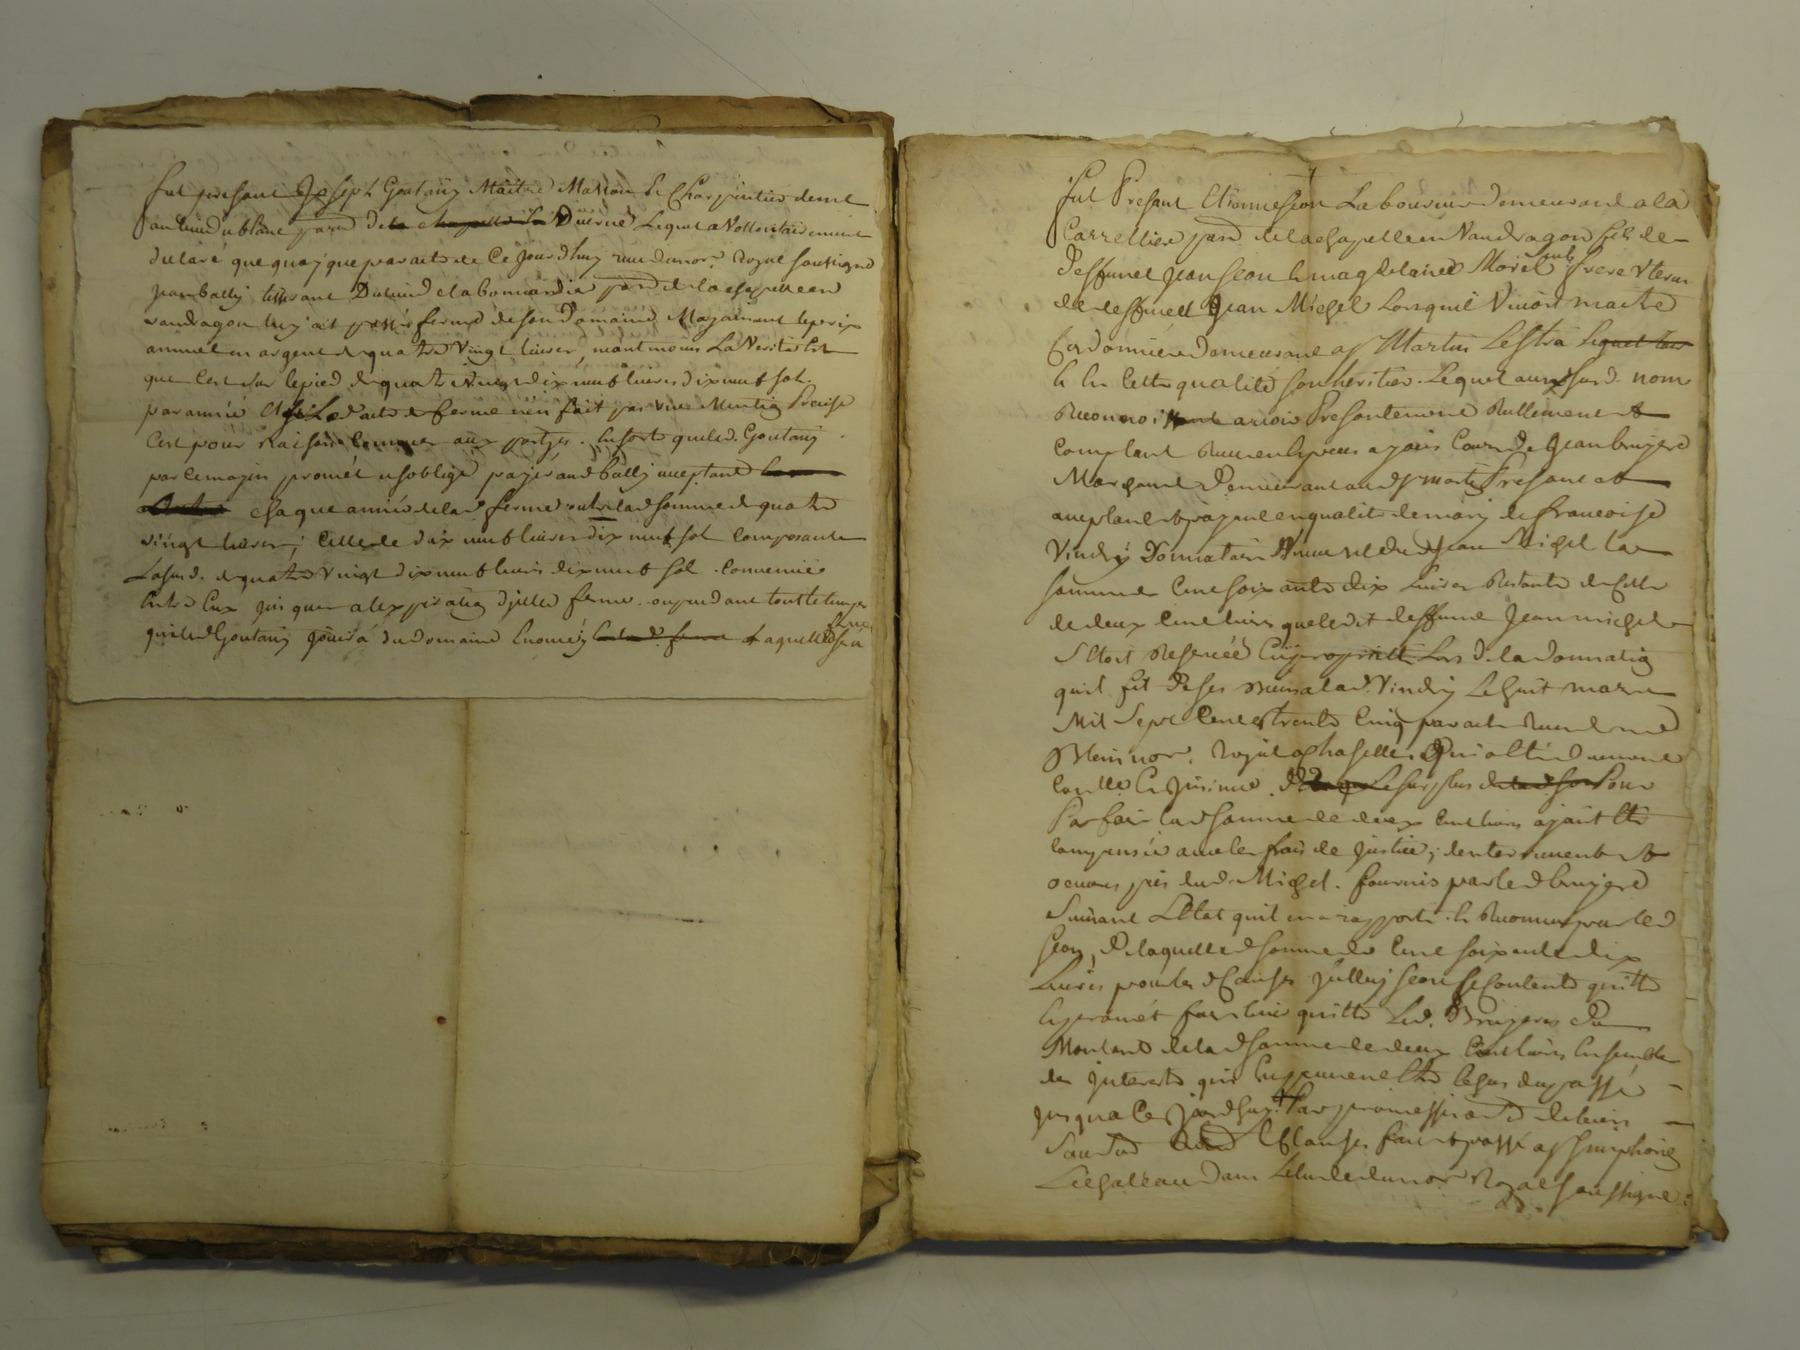 fut presant Joseph Goutany Maitre Masson & Charpentier demt
au lieu du blanc parr. de la chapelle Duerne Lequel a Vollontairement
declaré que quoy que par acte de Ce Jourdhuy reçu du nore. royal soussigné
jean bally tisserant Du lieu de la bonnardia parr. de la chapelle en
vaudragon luy ait passé ferme de son Domaine Moyennant le prix
annuel en argent de quatre Vingt livres, neantmoins La Verité Est
que C'est sur le pied de quatre vingt dix neuf livres dix neuf sols
par année Et si Led. acte de ferme n'en fait pas une Mention Precise
C'est pour Raisons Connues aux parties. En sorte que led. Goutany
par ce moyen promet & s'oblige payer aud. bally acceptant
chaque année de lad. ferme outre lad. somme de quatre
vingt livres, Celle de dix neuf livres dix neuf sols Composante
La susd. de quatre Vingt dix neuf livres dix neuf sols. Convenüe
Entre Eux jusques a l'expiration d'icelle ferme. ou pendant tout le temps
que led. Goutany Joüira du domaine Enoncé Laquelle
fut Presant Etienne Seon Laboureur Demeurant a la
Carrelliere parr. de la chapelle en Vaudragon fils de
Deffunct Jean Seon & magdelaine Morel frere Uterin
de deffunct Jean Michel Lorsquil Vivoit maitre
Cordonnier Demeurant a St Martin Lestra Lequel
& En Cette qualité son heritier. Lequel aux susd. nom
Reconnoit avoir Presentement Reellement &
Comptant Receu en Especes ayant Cours de Jean bruyere
Marchand Demeurant aud. St martin Presant &
acceptant & payant en qualité de mary de francoise
Vindry Donnataire Universelle dud. Jean Michel la
somme de Cent soixante dix Livres Restante de Celle
de deux Cent livres que ledit deffunct Jean michel
S'Etoit Reservée En proprieté Lors de la donnation
quil fit de ses biens a lad. Vindry Le huit mars
Mil Sept Cent trente Cinq par acte Receu de me
nore. royal a chaselles qui a été duement
Conlle. & Insinué. Le surplus Pour
Parfaire lad. somme de deux Cent livres ayant Eté
Compensée avec les frais de justice, denterrement &
oeuvres pies dud. Michel. fournis par led. bruyere
Suivant L'Etat quil en a rapporté & Reconnu par led.
Seon, De laquelle somme de Cent soixante dix
Livres pour les d. Causes Jcelluy Seon se Contente quitte
& promet faire tenir quitte Led. Bruyere du
Montant de lad. somme de deux Cent livres Ensemble
des Jnterets qui En peuvent Etre Echus du passé
jusqua Ce jourdhuy. Par promesses & de biens
Soumd. & Clauses fait & passé a St Simphorien
Le chateau Dans L'etude du nore. Royal soussigné